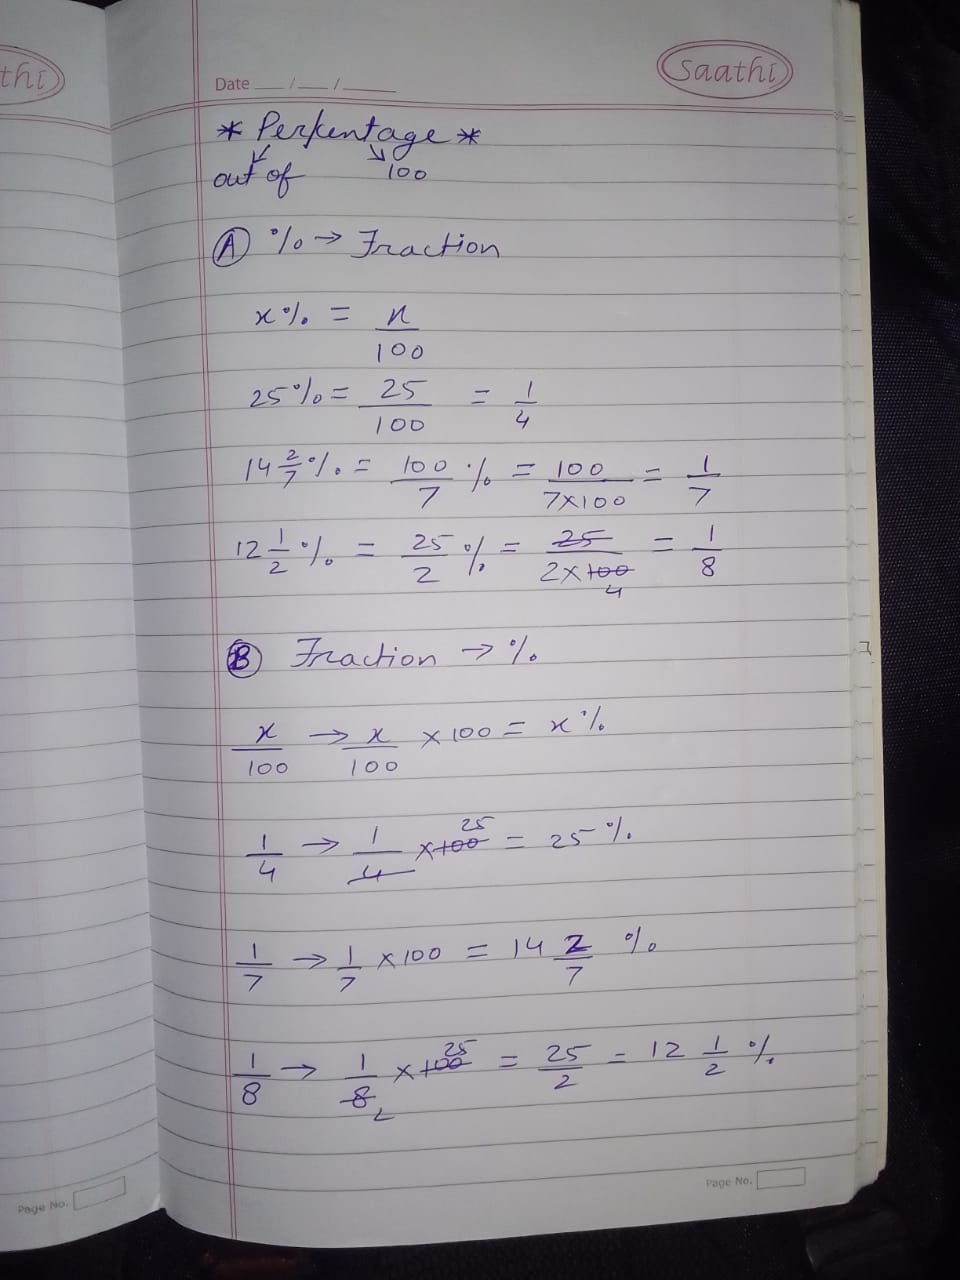 thi
Date __/__/____
Saathi
* Perkentage *
out of 100
Ⓐ % → Fraction
x% = x/100
25% = 25/100 = 1/4
14 2/7 % = 100/7 % = 100/(7×100) = 1/7
12 1/2 % = 25/2 % = 25/(2×100) = 1/8
4
Ⓑ Fraction → %
x/100 → x/100 × 100 = x%
25
1/4 → 1/4 × 100 = 25%
1/7 → 1/7 × 100 = 14 2/7 %
25
1/8 → 1/8 × 100 = 25/2 = 12 1/2 %
2
Page No.
Page No.